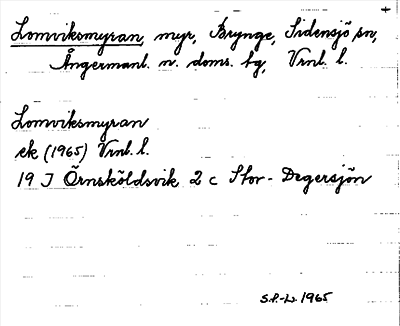 Lomviksmyran, myr, Brynge, Sidensjö sn,
Ångermanl. n. doms. bg, Vrnl. l.
Lomviksmyran
ek (1965) Vrnl. l.
19 J Örnsköldsvik 2 c Stor-Degersjön
S.P.-L. 1965